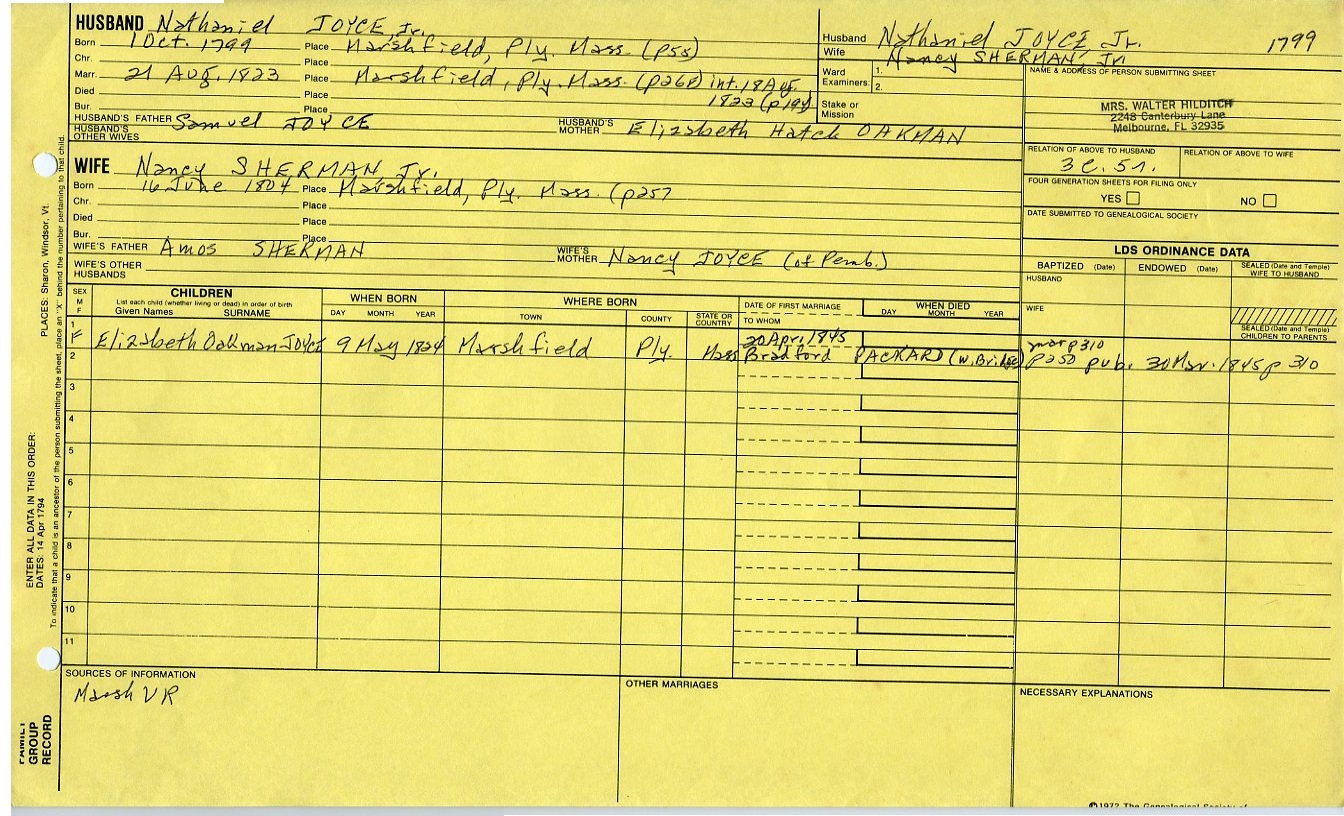 HUSBAND Nathaniel JOYCE, Jr.
Born 1 Oct. 1799 Place Marshfield, Ply. Mass. (p55)
Chr. Place
Marr. 21 Aug. 1823 Place Marshfield, Ply. Mass. (p268) int. 18 Aug.
Died Place 1823 (p194)
Bur. Place
HUSBAND'S FATHER Samuel JOYCE HUSBAND'S MOTHER Elizabeth Hatch OAKMAN
HUSBAND'S OTHER WIVES
Husband Nathaniel JOYCE Jr. 1799
Wife Nancy SHERMAN, Jr.
Ward Examiners: 1.
2.
Stake or Mission
NAME & ADDRESS OF PERSON SUBMITTING SHEET
MRS. WALTER HILDITCH
2248 Canterbury Lane
Melbourne, FL 32935
RELATION OF ABOVE TO HUSBAND RELATION OF ABOVE TO WIFE
3C.5r.
FOUR GENERATION SHEETS FOR FILING ONLY
YES NO
DATE SUBMITTED TO GENEALOGICAL SOCIETY
WIFE Nancy SHERMAN, Jr.
Born 16 June 1804 Place Marshfield, Ply. Mass. (p257
Chr. Place
Died Place
Bur. Place
WIFE'S FATHER Amos SHERMAN WIFE'S MOTHER Nancy JOYCE (of Pemb.)
WIFE'S OTHER HUSBANDS
LDS ORDINANCE DATA
BAPTIZED (Date) ENDOWED (Date) SEALED (Date and Temple) WIFE TO HUSBAND
HUSBAND
WIFE
SEALED (Date and Temple) CHILDREN TO PARENTS
SEX M F
CHILDREN
List each child (whether living or dead) in order of birth
Given Names SURNAME
WHEN BORN
DAY MONTH YEAR
WHERE BORN
TOWN COUNTY STATE OR COUNTRY
DATE OF FIRST MARRIAGE
TO WHOM
WHEN DIED
DAY MONTH YEAR
1 F Elizabeth Oakman JOYCE 9 May 1824 Marshfield Ply. Mass 20 Apr. 1845 mar p310
Bradford PACKARD (W. Bridge) p250 pub. 30 Mar. 1845 p 310
2
3
4
5
6
7
8
9
10
11
SOURCES OF INFORMATION
Marsh VR
OTHER MARRIAGES
NECESSARY EXPLANATIONS
PLACES: Sharon, Windsor, Vt.
ENTER ALL DATA IN THIS ORDER:
DATES: 14 Apr 1794
To indicate that a child is an ancestor of the person submitting the sheet, place an "X" behind the number pertaining to that child.
FAMILY GROUP RECORD
©1972 The Genealogical Society of